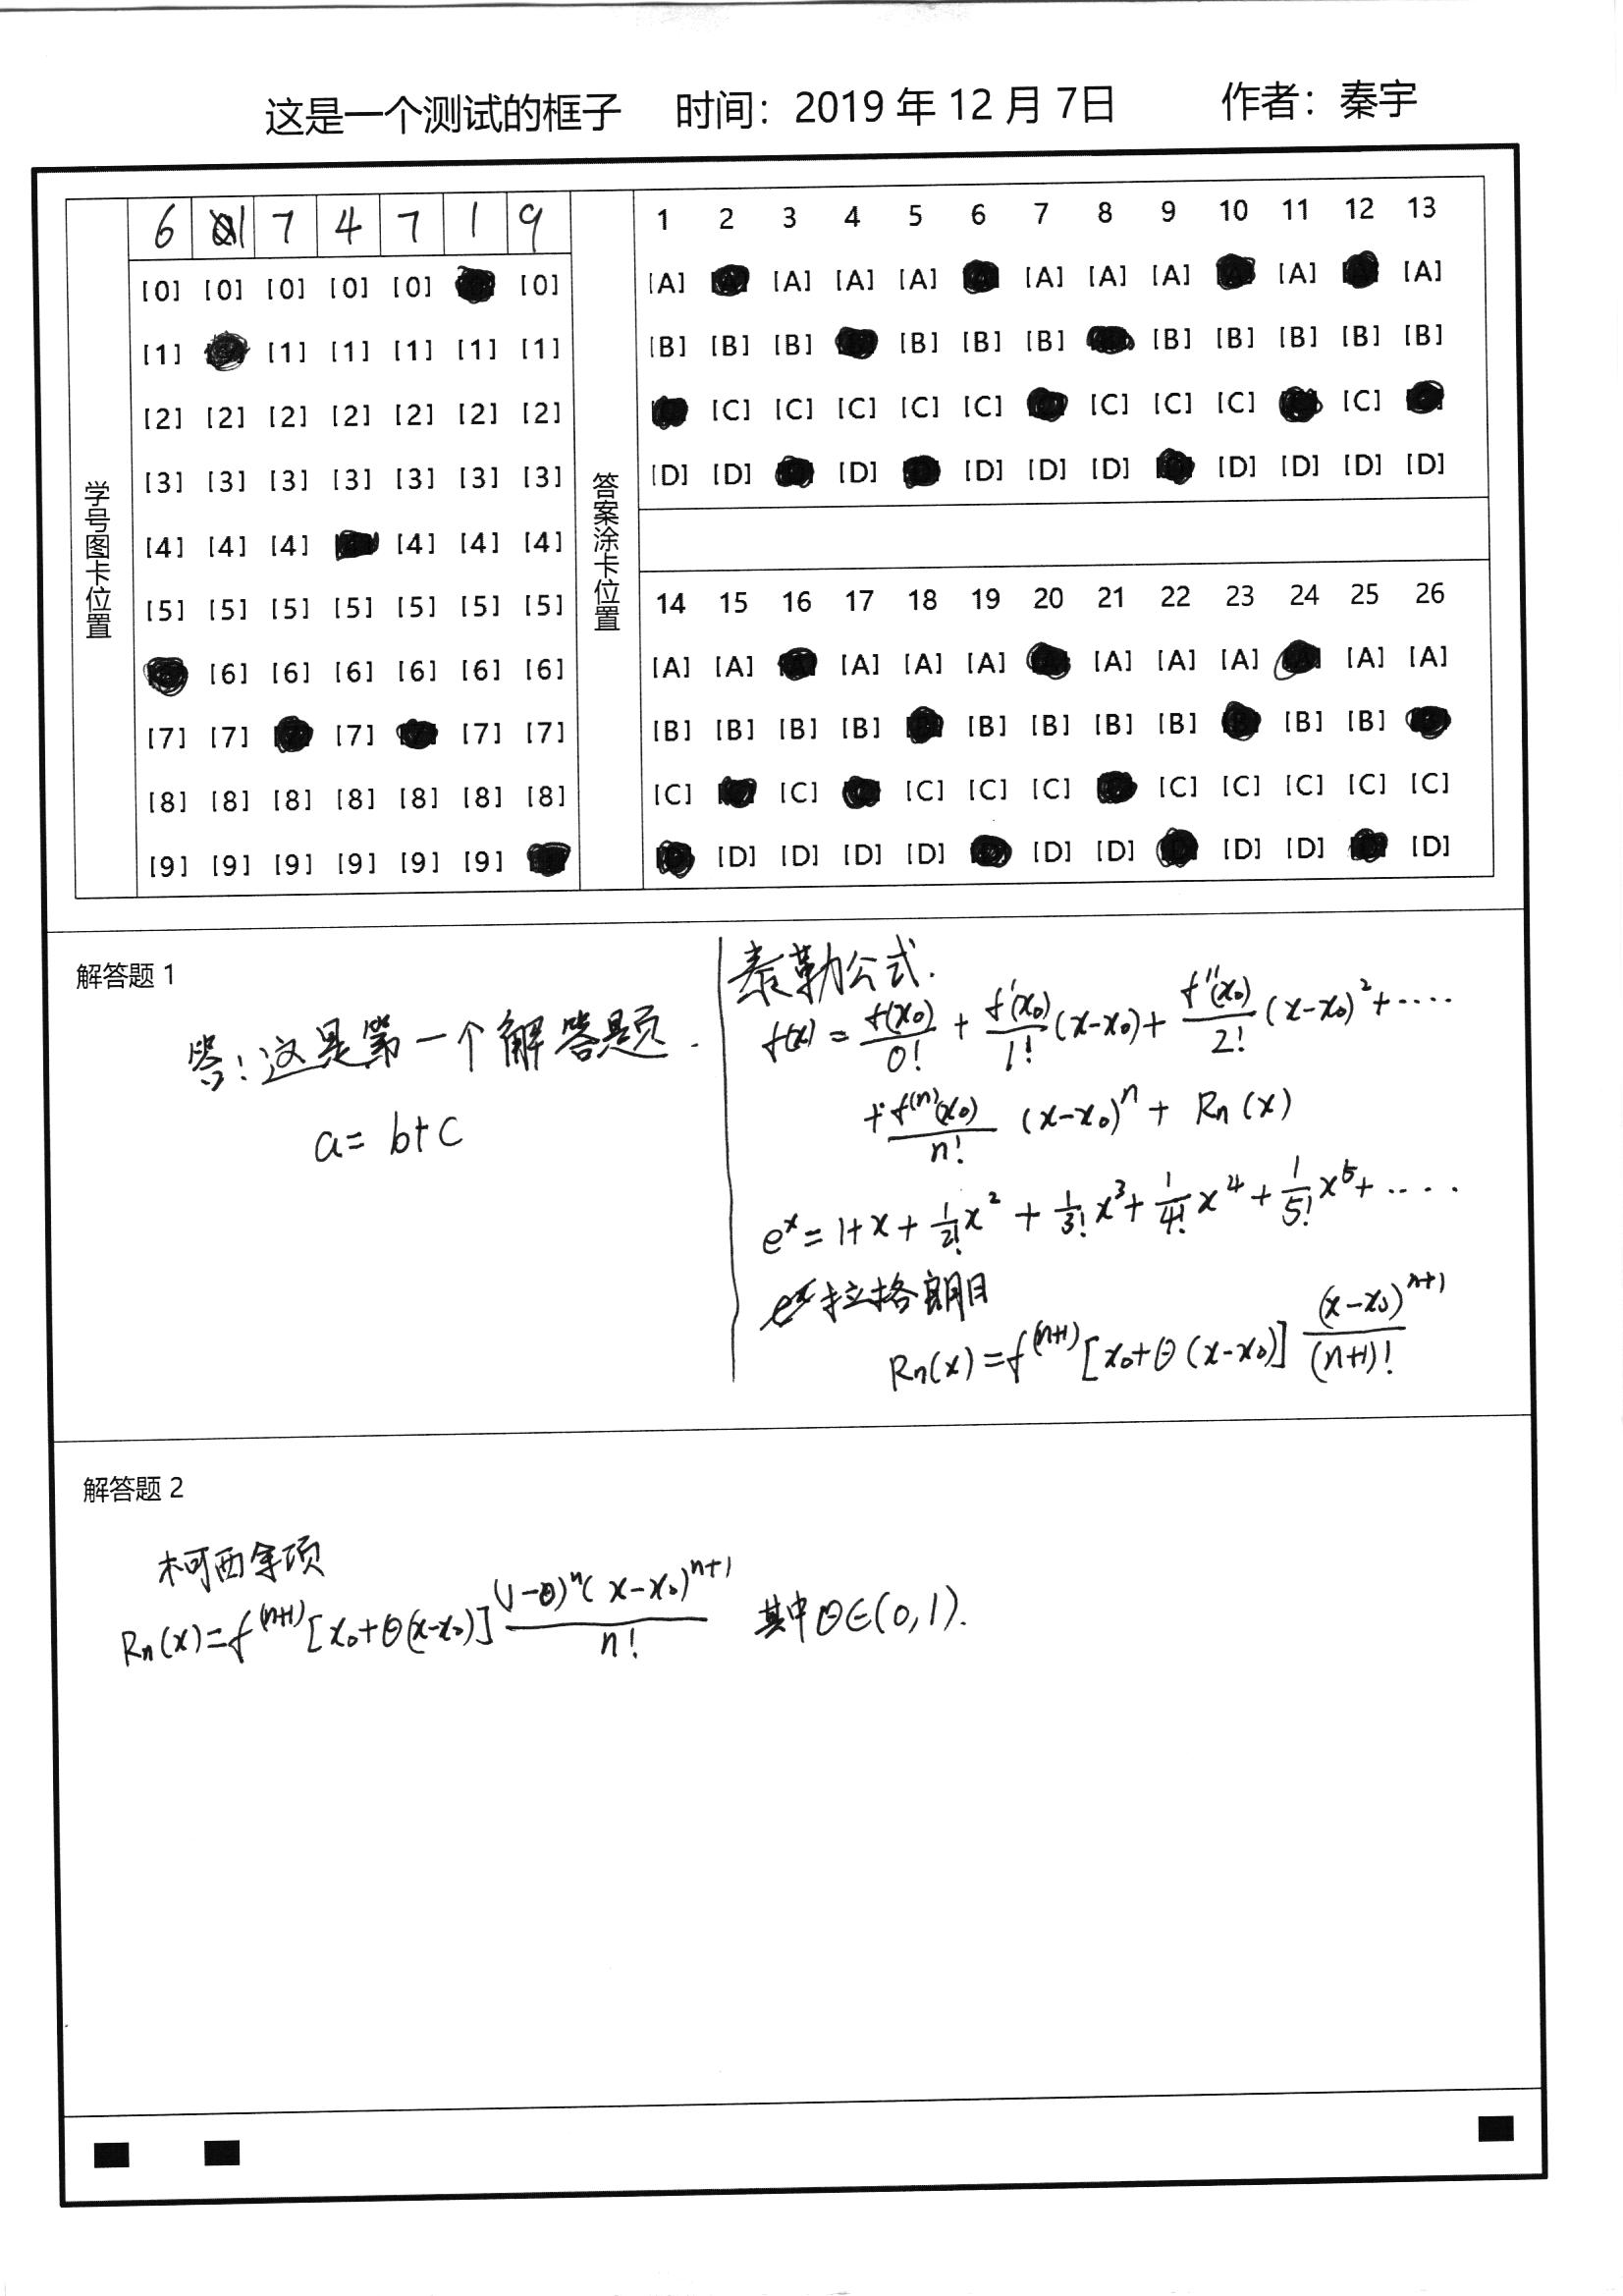 这是一个测试的框子 时间：2019 年 12 月 7日 作者：秦宇
学号图卡位置
6 1 7 4 7 1 9
[0] [0] [0] [0] [0] [0]
[1] [1] [1] [1] [1] [1]
[2] [2] [2] [2] [2] [2] [2]
[3] [3] [3] [3] [3] [3] [3]
[4] [4] [4] [4] [4] [4]
[5] [5] [5] [5] [5] [5] [5]
[6] [6] [6] [6] [6] [6]
[7] [7] [7] [7] [7]
[8] [8] [8] [8] [8] [8] [8]
[9] [9] [9] [9] [9] [9]
答案涂卡位置
1 2 3 4 5 6 7 8 9 10 11 12 13
[A] [A] [A] [A] [A] [A] [A] [A] [A]
[B] [B] [B] [B] [B] [B] [B] [B] [B] [B] [B]
[C] [C] [C] [C] [C] [C] [C] [C] [C]
[D] [D] [D] [D] [D] [D] [D] [D] [D] [D]
14 15 16 17 18 19 20 21 22 23 24 25 26
[A] [A] [A] [A] [A] [A] [A] [A] [A] [A]
[B] [B] [B] [B] [B] [B] [B] [B] [B] [B]
[C] [C] [C] [C] [C] [C] [C] [C] [C] [C]
[D] [D] [D] [D] [D] [D] [D] [D] [D]
解答题 1
答：这是第一个解答题.
a = b+c
泰勒公式.
f(x) = f(x₀)/0! + f'(x₀)/1! (x-x₀) + f''(x₀)/2! (x-x₀)² + ····
+ f⁽ⁿ⁾(x₀)/n! (x-x₀)ⁿ + Rn(x)
eˣ = 1+x+ 1/2! x² + 1/3! x³ + 1/4! x⁴ + 1/5! x⁵ + ····
拉格朗日
Rn(x) = f⁽ⁿ⁺¹⁾[x₀+θ(x-x₀)] (x-x₀)ⁿ⁺¹/(n+1)!
解答题 2
柯西余项
Rn(x) = f⁽ⁿ⁺¹⁾[x₀+θ(x-x₀)] (1-θ)ⁿ(x-x₀)ⁿ⁺¹/n! 其中θ∈(0,1).